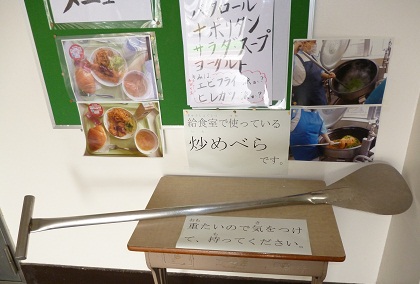 メニュー
ナポリタン
サラダ・スープ
ヨーグルト
エビフライ
ヒレカツ
給食室で使っている
炒めべら
です。
重たいので気をつけ
て、持ってください。